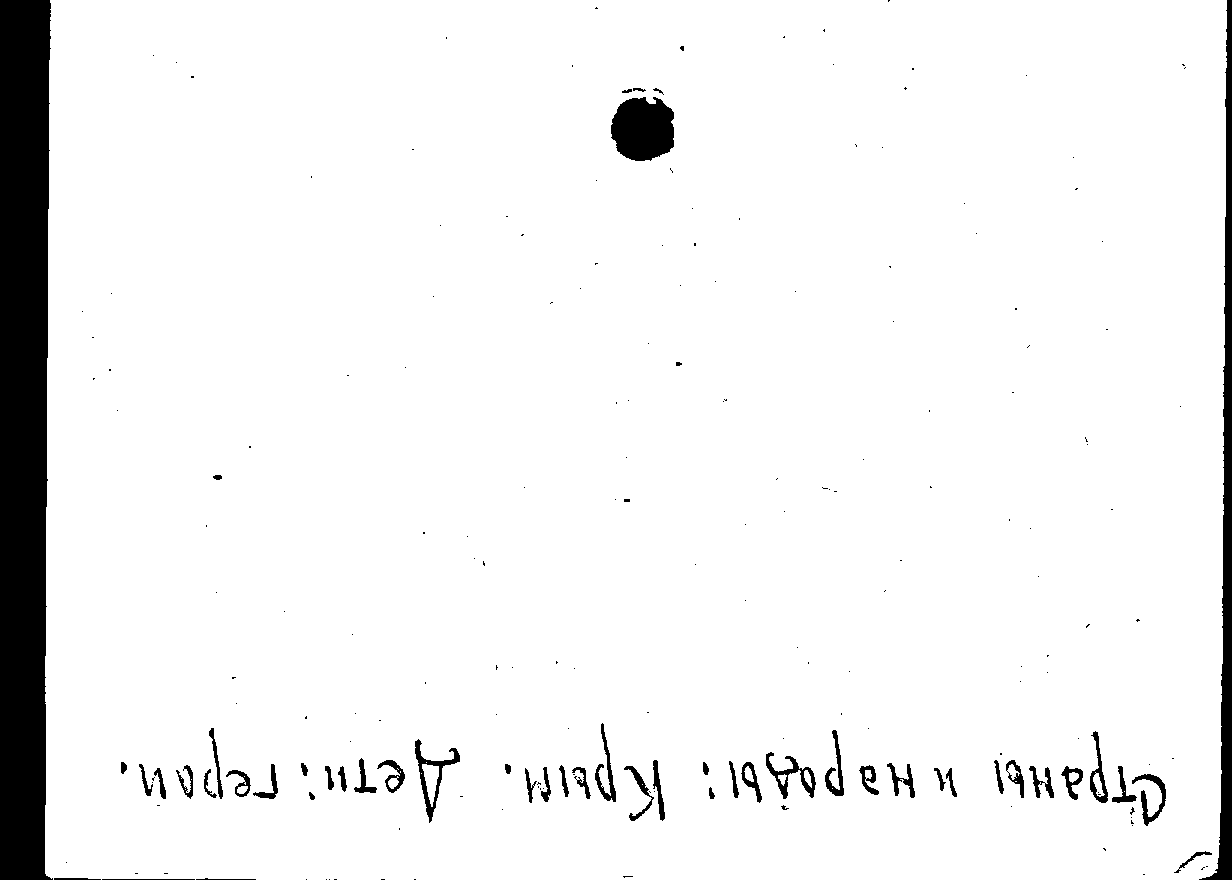 Страны и народы: Крым. Дети: герои.